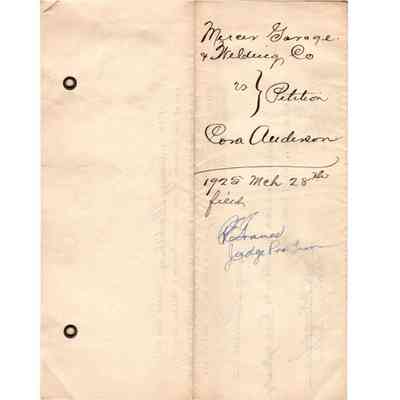 Mercer Garage
& Welding Co
vs } Petition
Cora Anderson
1925 Mch 28th
filed
Judge Pro Tem